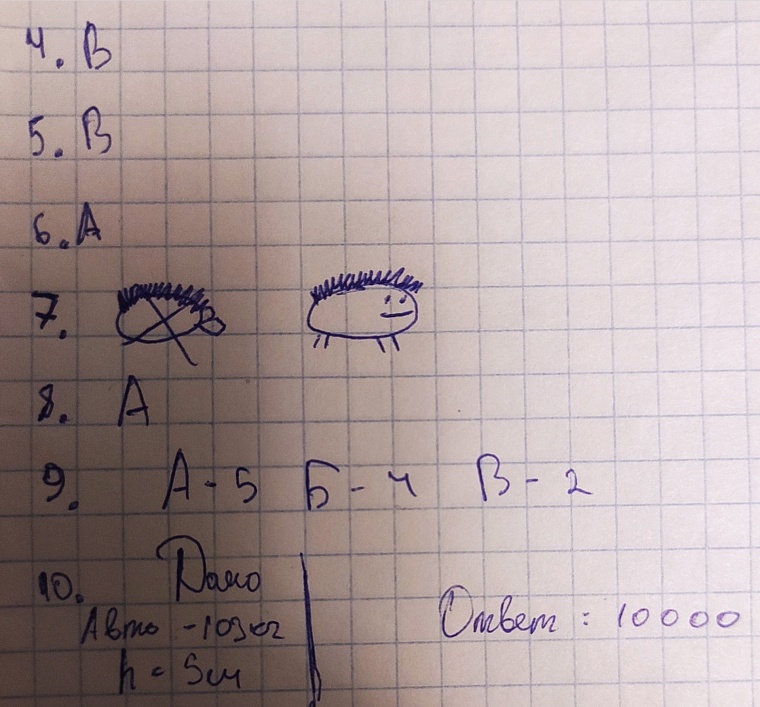 4. В
5. В
6. А
7.
8. А
9. А - 5 Б - 4 В - 2
10. Дано
Авто -103кг
h = 5см
Ответ : 10000